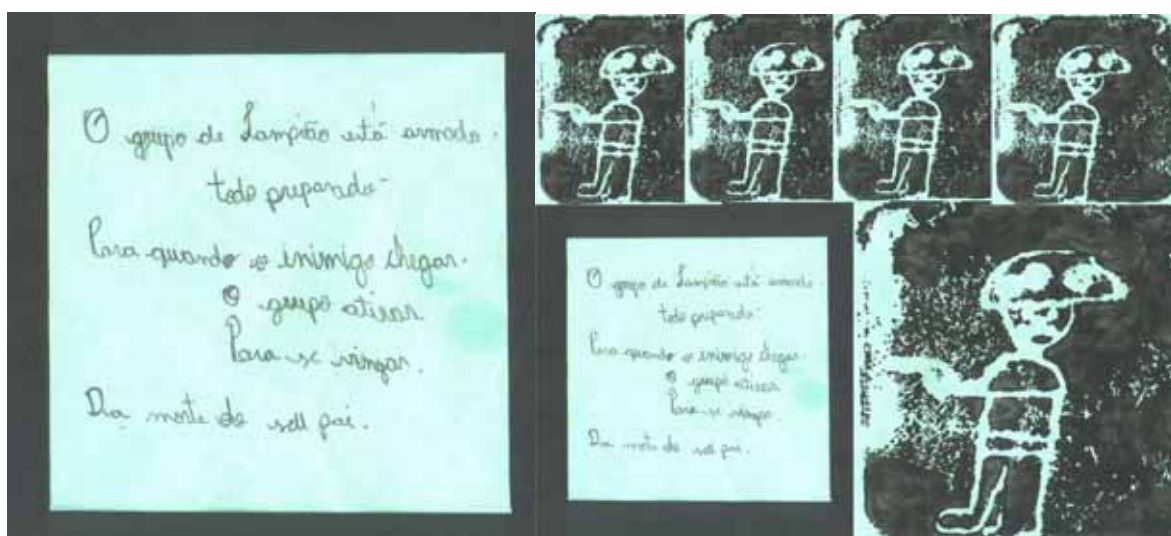 O grupo de Lampião está armado.
todo preparado-
Para quando o inimigo chegar.
O grupo atirar
Para se vingar.
Da morte de seu pai.
O grupo de Lampião está armado.
todo preparado-
Para quando o inimigo chegar.
O grupo atirar
Para se vingar.
Da morte de seu pai.